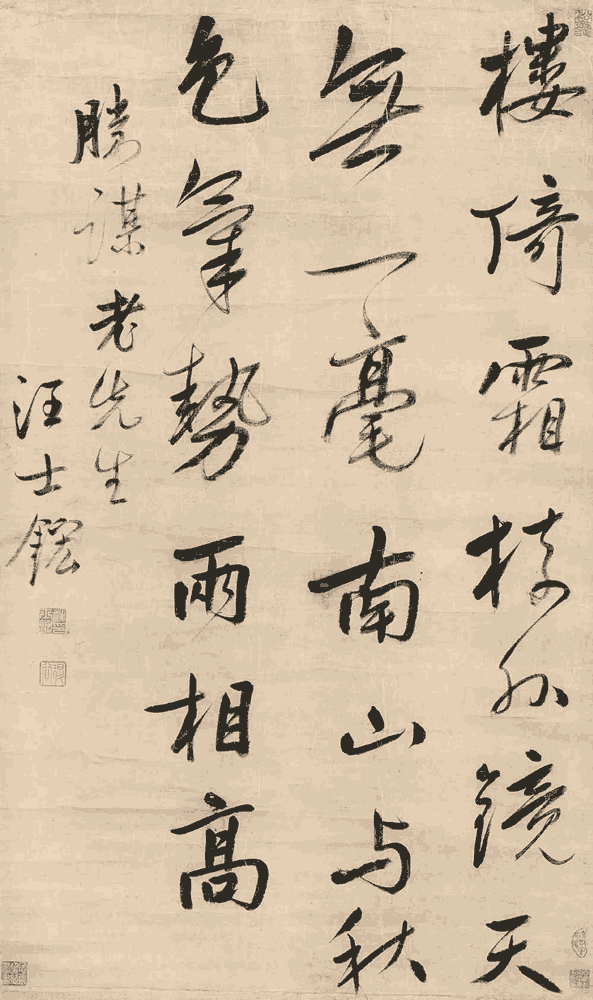 樓倚霜樹外鏡天
無一毫南山与秋
色氣勢兩相高
勝謀老先生
汪士鋐